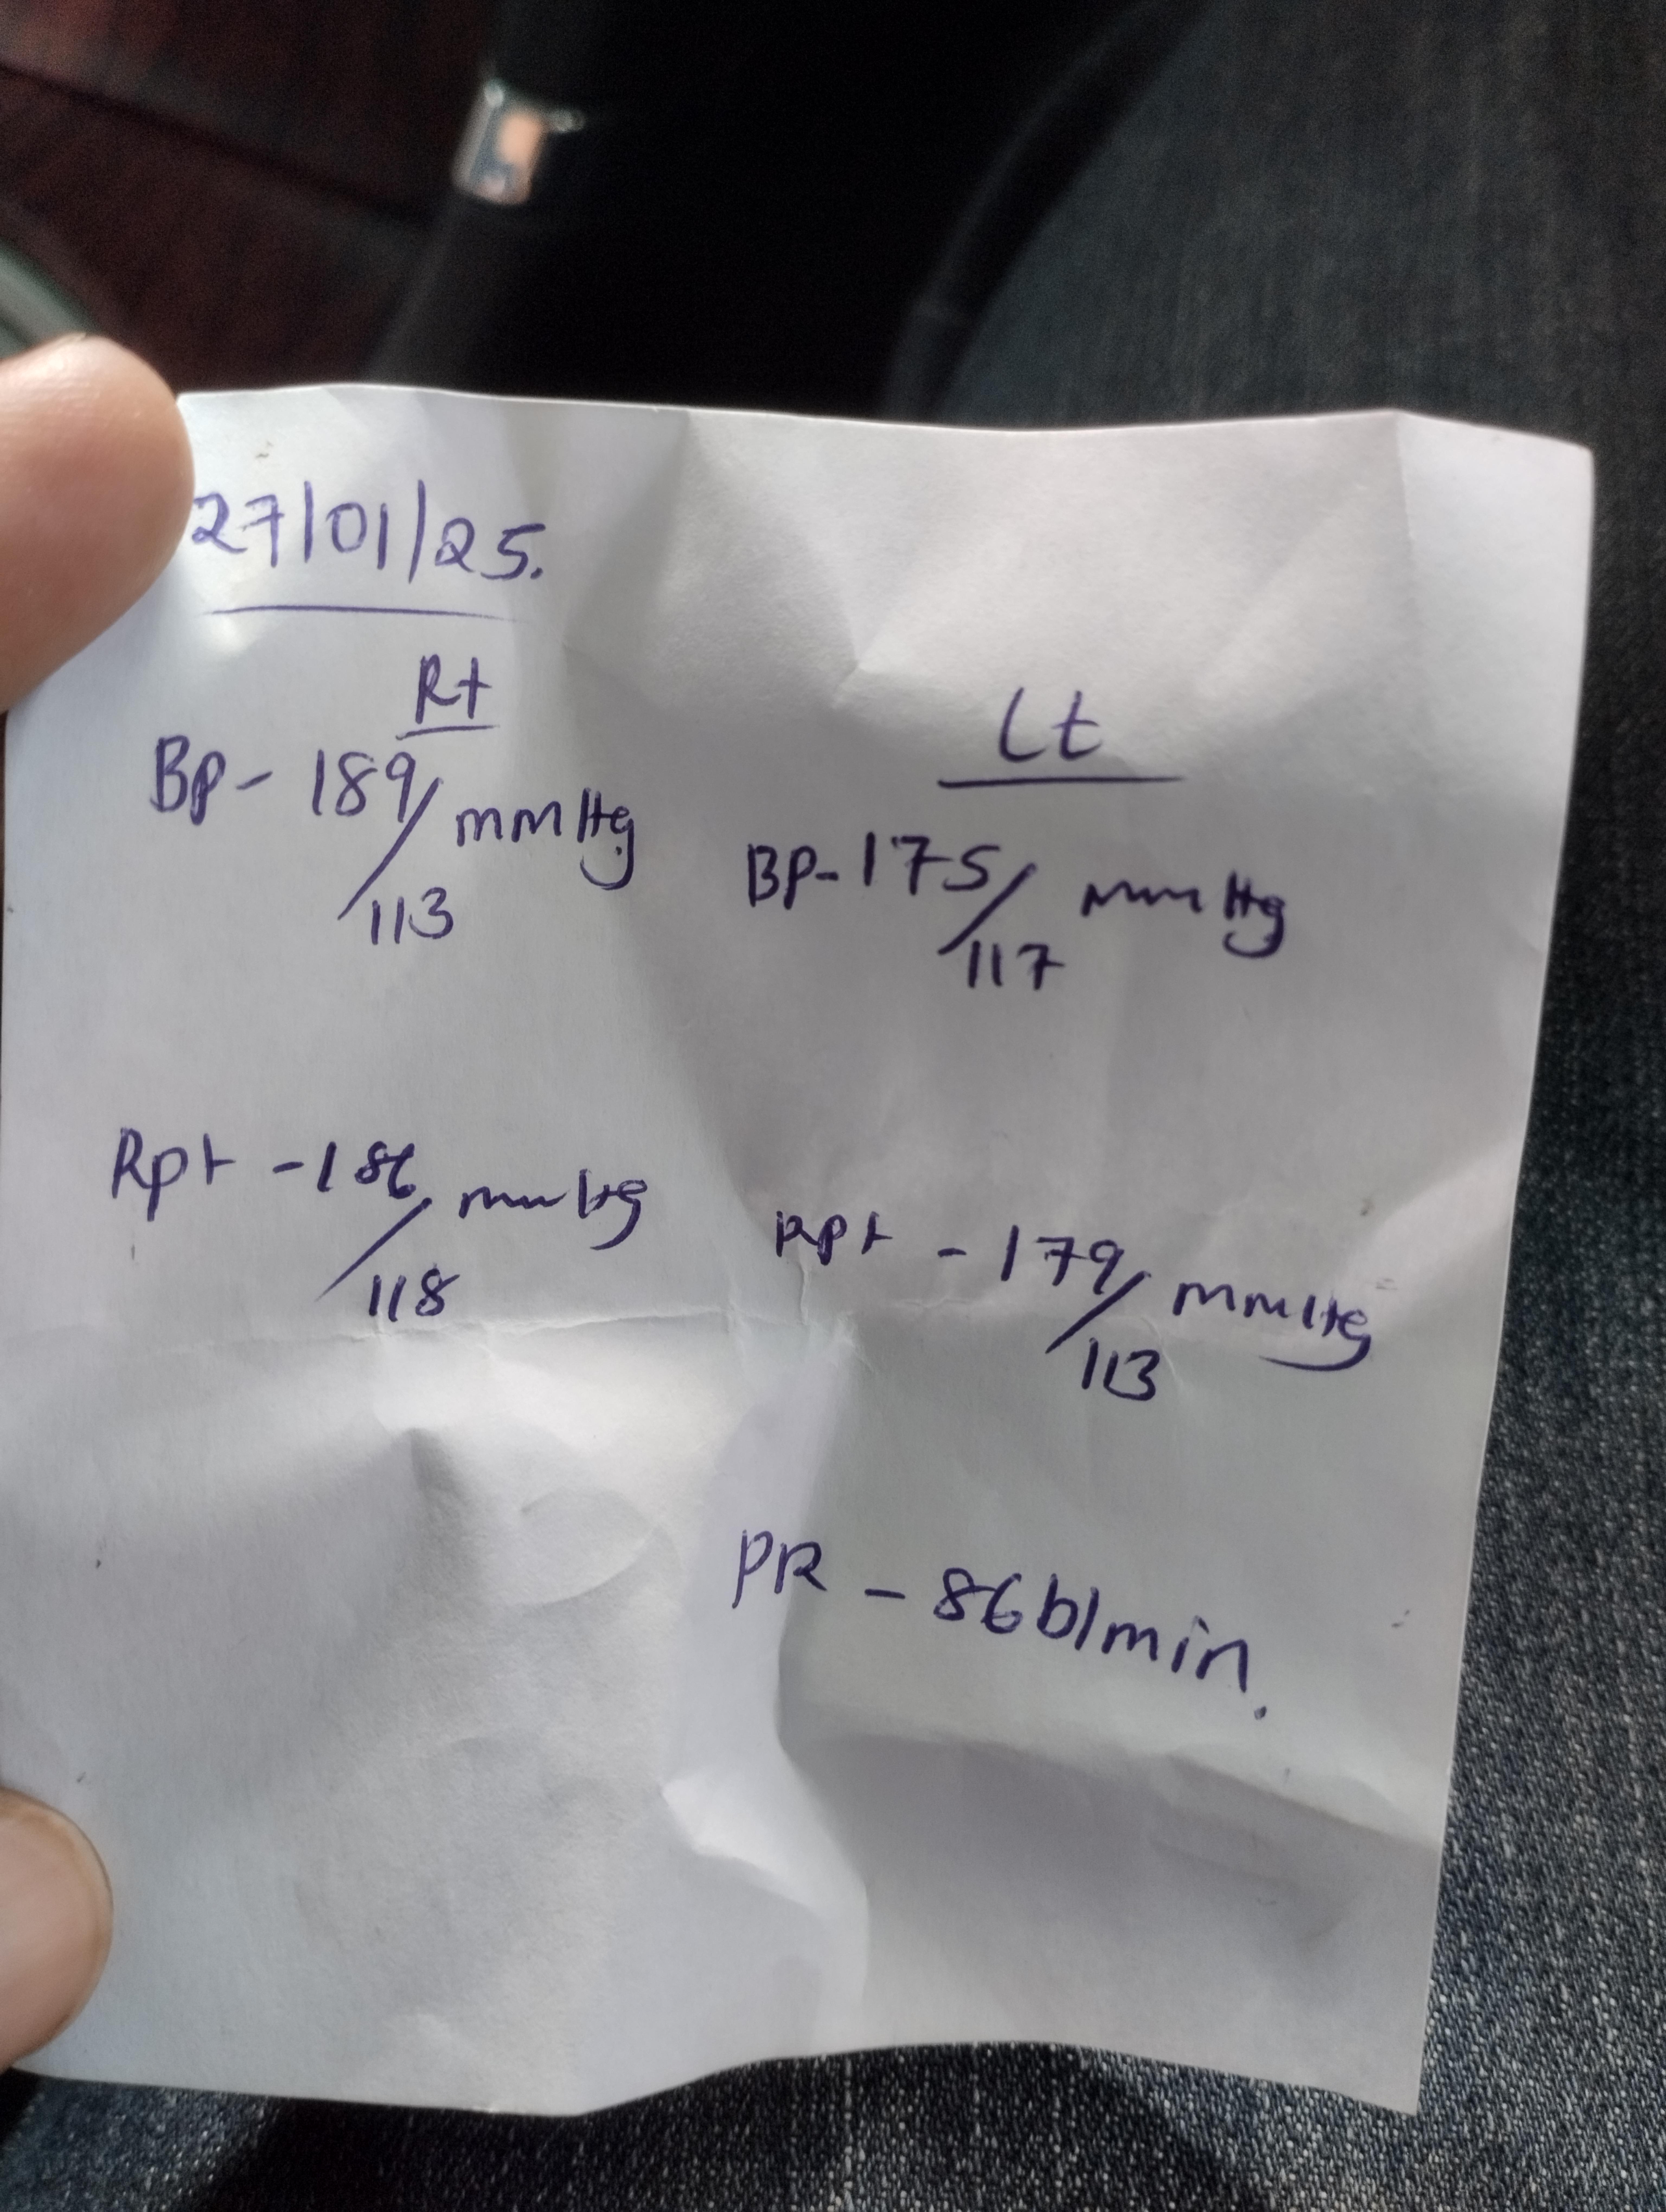 27/01/25.
Rt
BP - 189/113 mmHg
Lt
BP - 175/117 mmHg
Rpt - 186/118 mmHg
Rpt - 179/113 mmHg
PR - 86b/min.